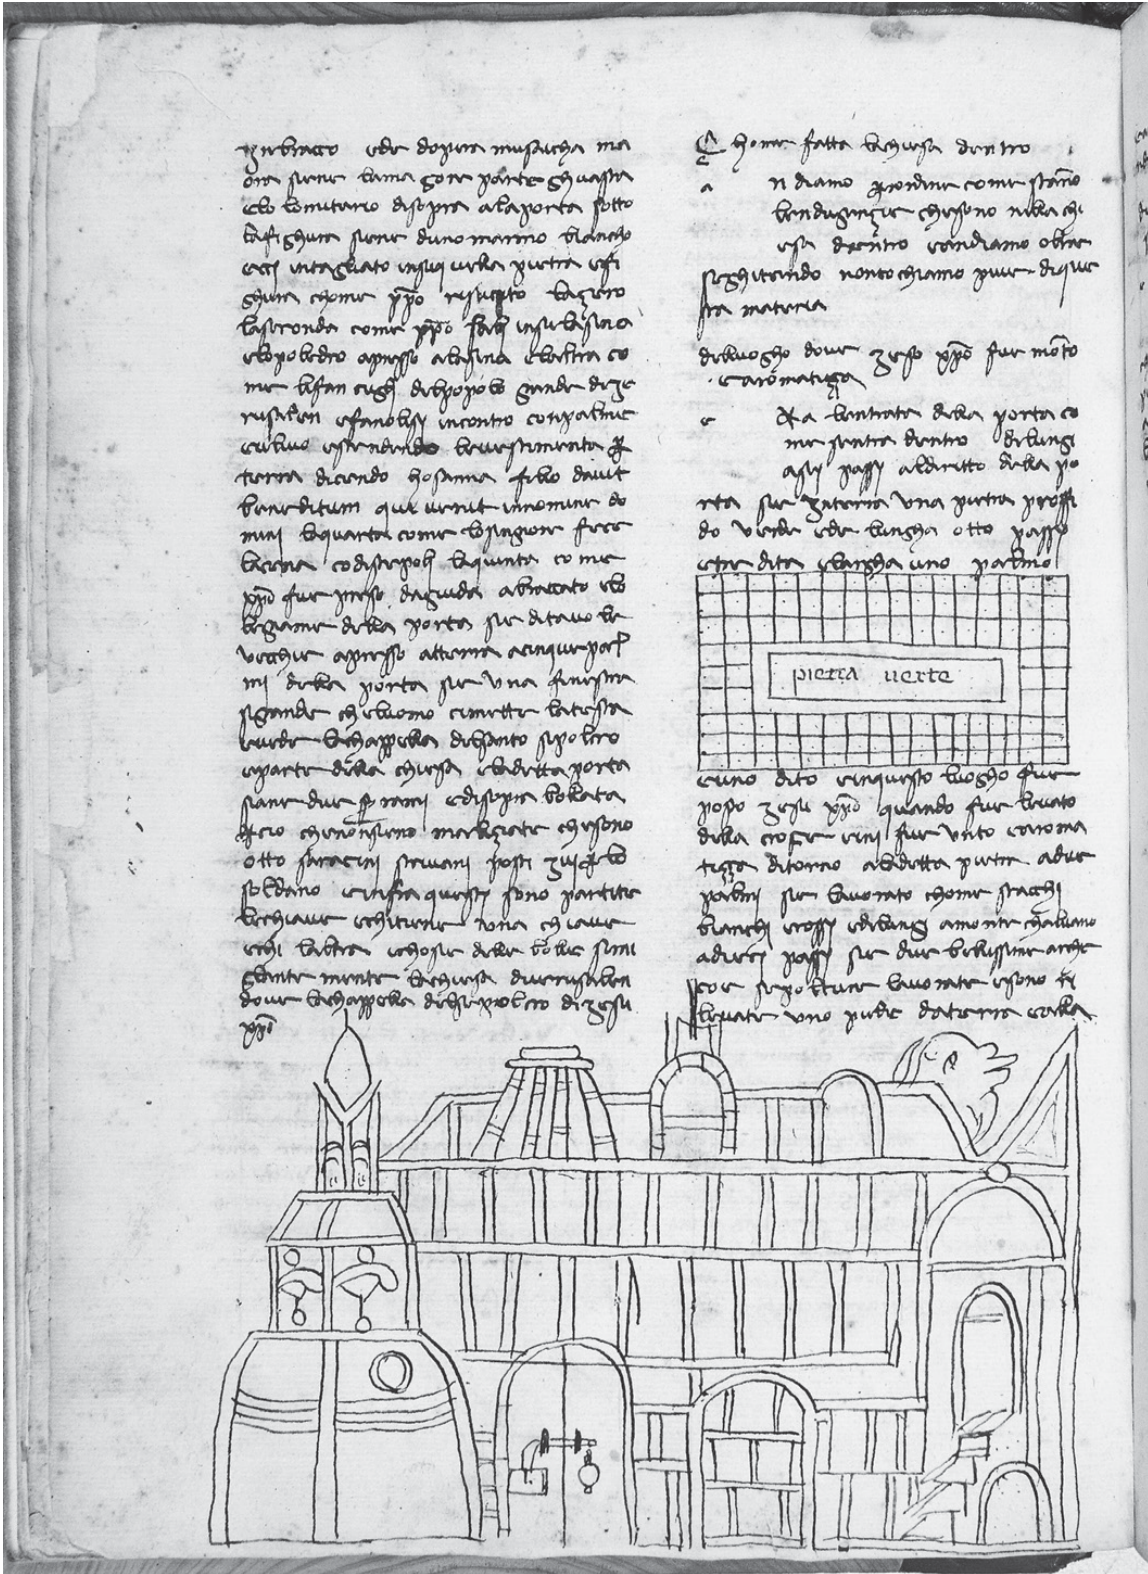 in braccio ede dopera musaicha ma
ora siene lamagore parte ghuasta
elo lomitario disopra alaporta sotto
lafighura siene duno marmo biancho
ecci intagliato insuquella pietra efi
ghura chome xpo risucito lazero
laseconda come xpo insulasina
elopoledro apresso alasina elaltra co
me lifan cugli delpopolo grande dige
rusalen efanolisi incontro conpalme
eulivo estendendo levestimenta per
terra dicendo hosanna filio davit
beneditum qui venit innomine do
mini laquarta come losingniore fece
lacena codiscepoli laquinta come
xpo fue preso dagiuda abracato elo
legiame della porta sie ditavole
vecchie apresso atterra acinque pal
mi della porta sie una finestra
sigrande cheluomo cimette latesta
evede lachappella delsanto sipolcro
eparte della chiesa eladetta porta
siane due serrami edisopra bollata
percio chenonsieno chesono
otto saracini scrivani posti ivi perlo
soldano einfra questi sono partite
lechiave echitiene una chiave
echi laltra echosie delle bolle simi
gliante mente lachiesa dierusalen
dove lachappella delsepolcro digesu
xpo
Chome fatta lachiesa dentro
andiamo perordine come stano
lendugenzie chesono nelachi
esa dentro eandiamo oltre
seghitando nontochiamo piue dique
sta materia
delluogho dove zeso xpo fue morto
earomatiza
eRa lentrata della porta co
me sentra dentro dilungi
asei passi aldiritto della po
rta sie interra una pietra proffi
do verde ede lungha otto passi
etre dita elargha uno palmo
pietra uerte
euno dito einquesto luogho fue
posto zesu xpo quando fue levato
della croce eivi fue unto earoma
tizza ditorno aladetta pietre adue
palmi sie lavorato chome scachi
bianchi erossi edilungi amonte chalvario
adieci passi sie due bellissime arche
coe sepolture lavorate esono ri
levate uno piede daterra ealla